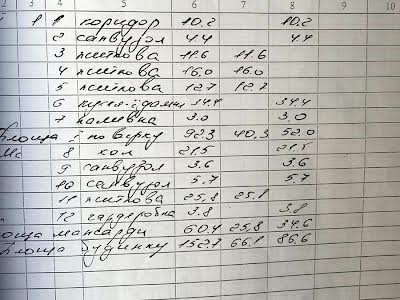 3 4 5 6 7 8 9 10
1 1 коридор 10.2 10.2
2 санвузол 4.4 4.4
3 житлова 11.6 11.6
4 житлова 16.0 16.0
5 житлова 12.7 12.7
6 кухня-їдальня 34.4 34.4
7 комівка 3.0 3.0
площа 1 поверху 92.3 40.3 52.0
Мс 8 хол 21.5 21.5
9 санвузол 3.6 3.6
10 санвузол 5.7 5.7
11 житлова 25.8 25.8
12 гардеробна 3.8 3.8
площа мансарди 60.4 25.8 34.6
площа будинку 152.7 66.1 86.6